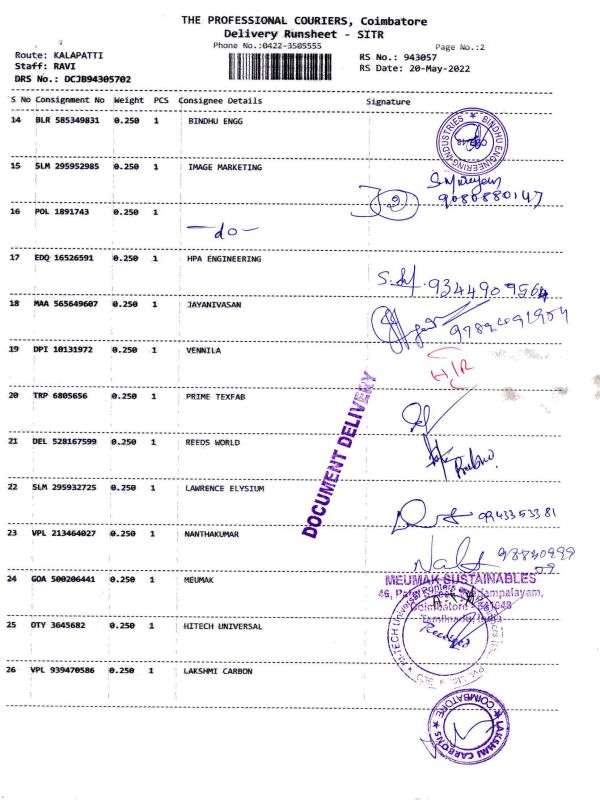 THE PROFESSIONAL COURIERS, Coimbatore
Delivery Runsheet - SITR
Phone No.:0422-3505555
Page No.:2
Route: KALAPATTI
Staff: RAVI
DRS No.: DCJB94305702
RS No.: 943057
RS Date: 20-May-2022
S No Consignment No Weight PCS Consignee Details Signature
14 BLR 585349831 0.250 1 BINDHU ENGG
BINDHU ENGINEERING INDUSTRIES
15 SLM 295952985 0.250 1 IMAGE MARKETING
9080880147
16 POL 1891743 0.250 1
-do-
17 EDQ 16526591 0.250 1 HPA ENGINEERING
9344909564
18 MAA 565649607 0.250 1 JAYANIVASAN
19 DPI 10131972 0.250 1 VENNILA
H/R
20 TRP 6805656 0.250 1 PRIME TEXFAB
21 DEL 528167599 0.250 1 REEDS WORLD
DOCUMENT DELIVERY
22 SLM 295932725 0.250 1 LAWRENCE ELYSIUM
9943353381
23 VPL 213464027 0.250 1 NANTHAKUMAR
24 GOA 500206441 0.250 1 MEUMAK
MEUMAK SUSTAINABLES
Coimbatore - 641048
Tamilnadu, India
25 OTY 3645682 0.250 1 HITECH UNIVERSAL
Received
26 VPL 939470586 0.250 1 LAKSHMI CARBON
LAKSHMI CARBONS
COIMBATORE